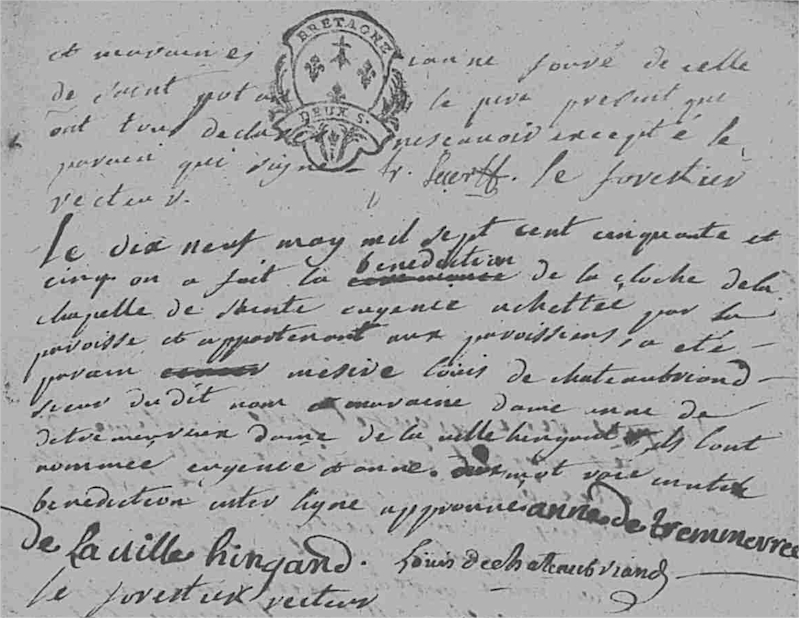 et maraines
BRETAGNE
DEUX S.
ianne fouré de celle
de saint pota le pere present qui
ont tous declaré ne scavoir excepté le
parain qui signe fr. le forestier
recteur.
Le dix neuf may mil sept cent cinquante et
cinq on a fait la benediction ceremonie de la cloche de la
chapelle de Sainte eugence achettée par la
paroisse et appartenant aux paroissiens, a eté
parain mesire louis de chateaubriand
sieur du dit nom et maraine dame anne de
dame de la ville hingant ils l'ont
nommée eugence et anne. mot raié nulle
benediction inter ligne approuvé anne de tremmevree
de la ville hingand. Louis de chateaubriand
le forestier recteur